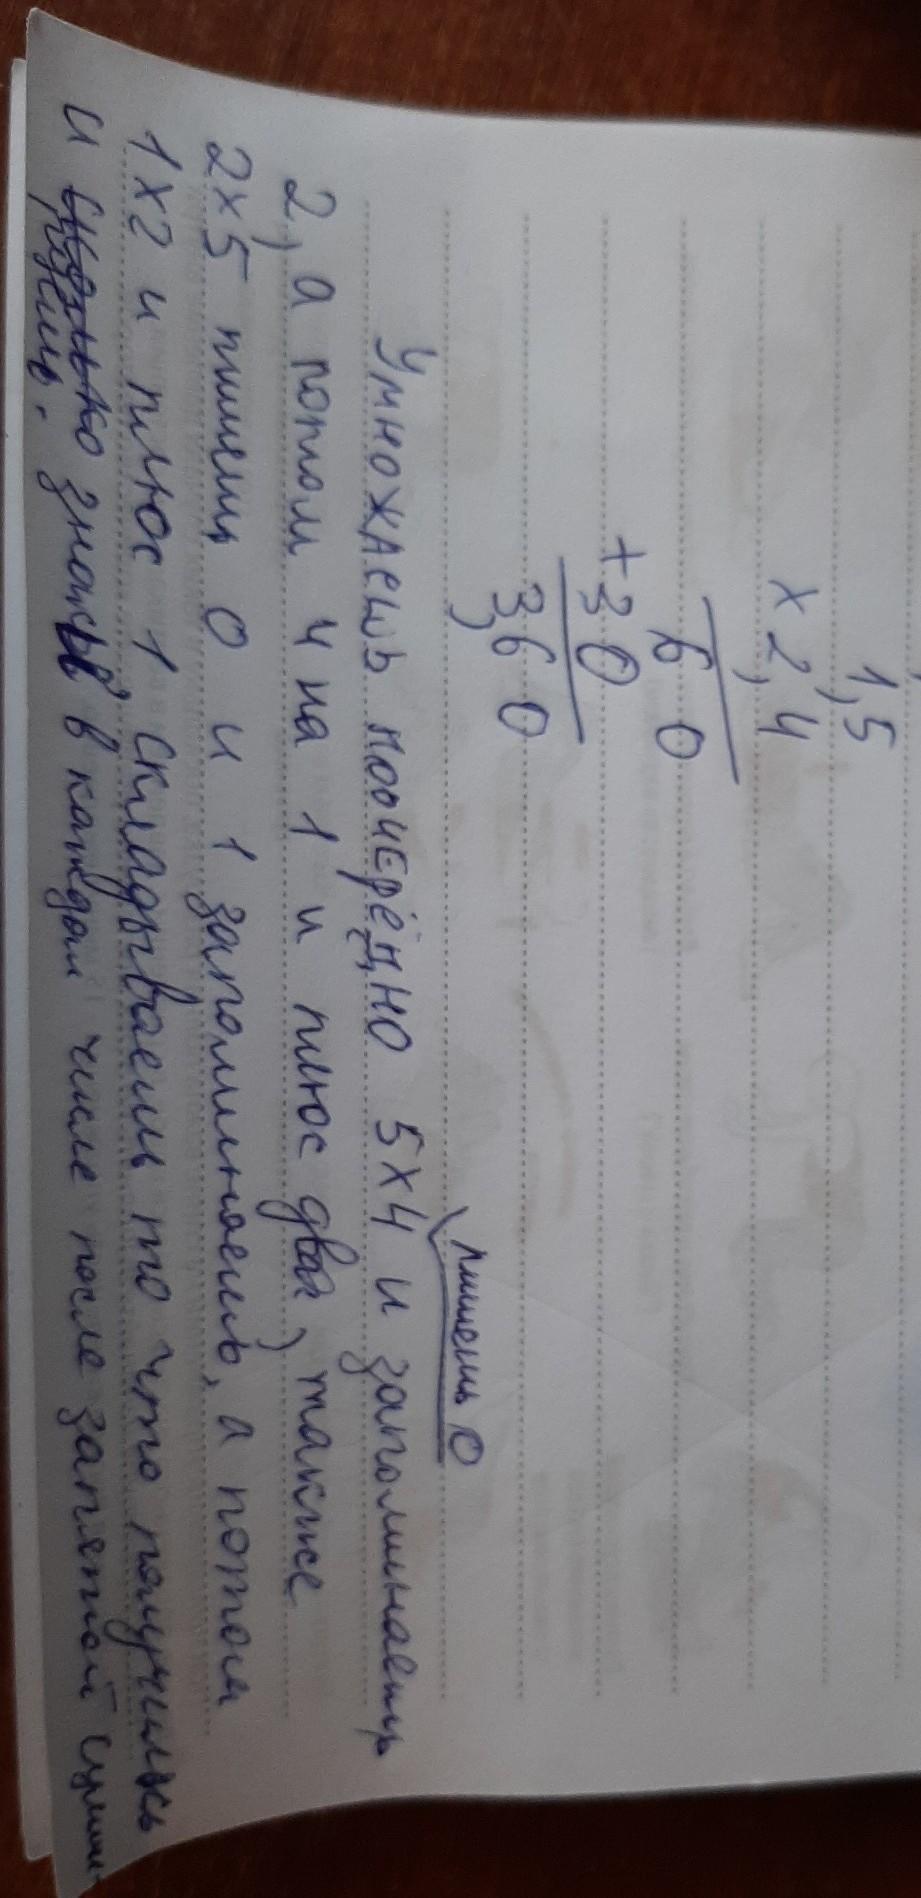 1,5
× 2,4
6 0
+ 3 0
3,6 0
пишешь 0
Умножаешь поочерёдно 5×4 и запоминаешь
2, а потом 4 на 1 и плюс два, также
2×5 пишешь 0 и 1 запоминаешь, а потом
1×2 и плюс 1, складываешь то что получилось
и сколько знаков в каждом числе после запятой сумми-
руешь.